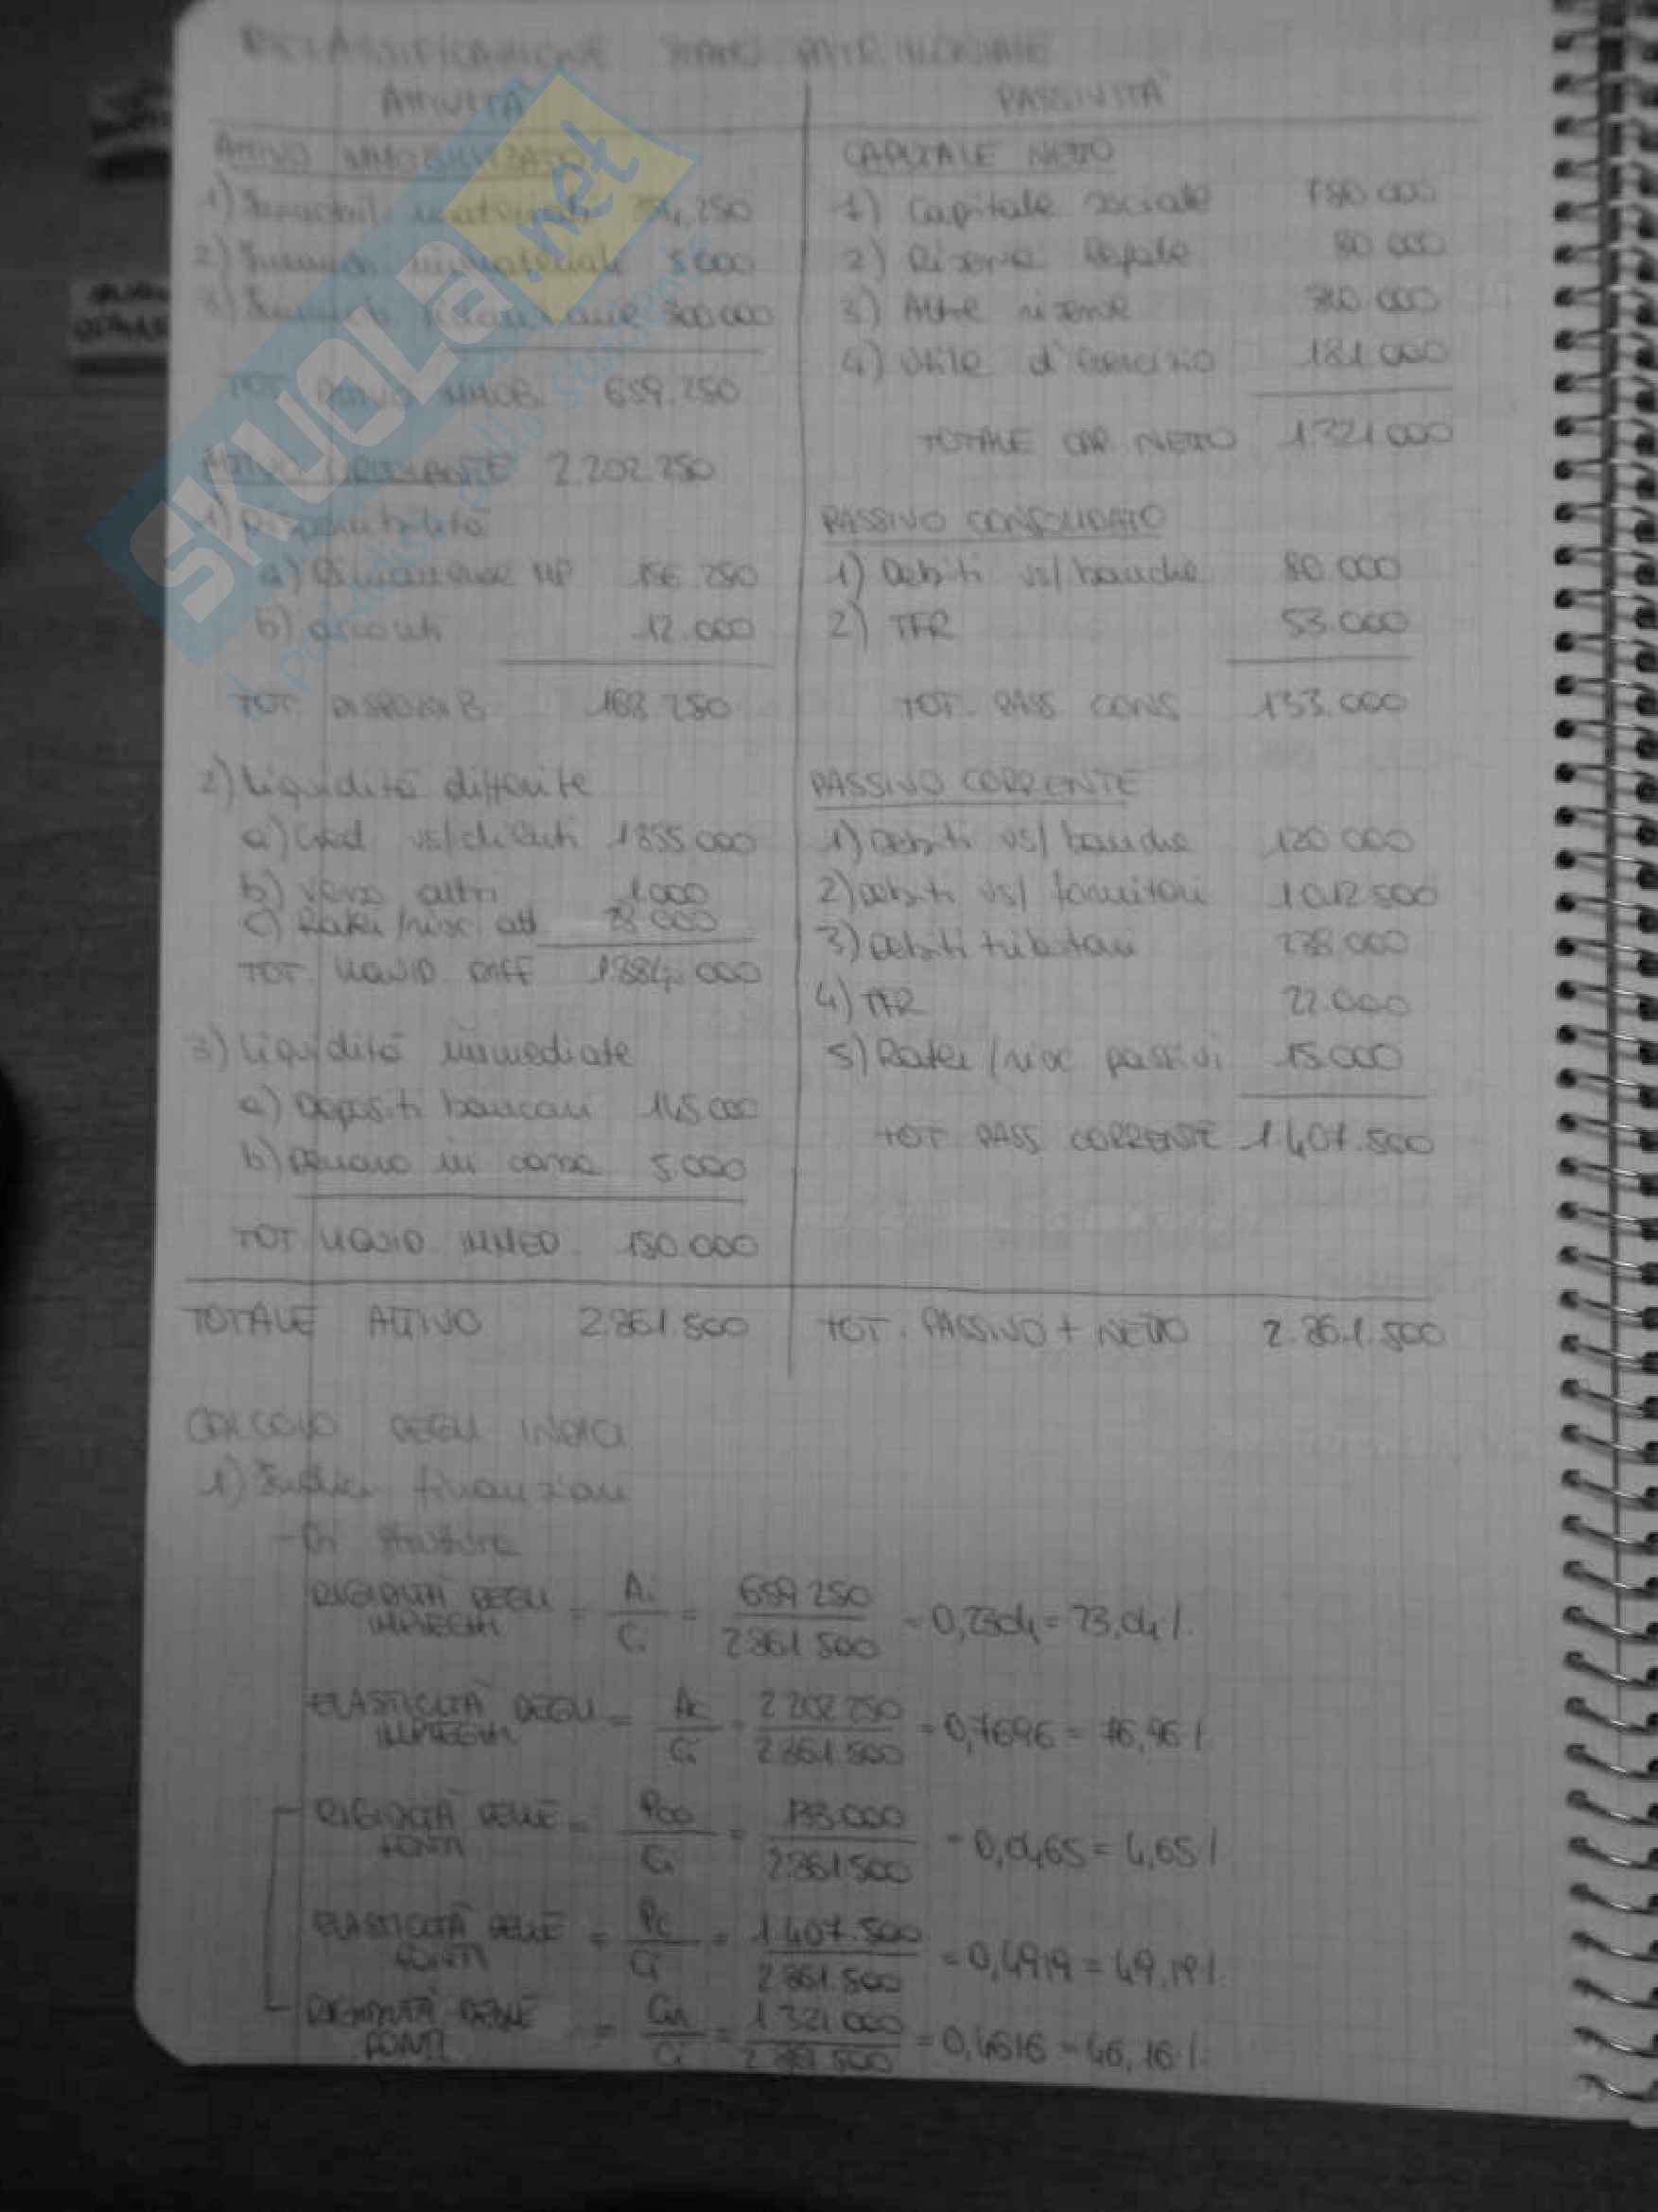 RICLASSIFICAZIONE STATO PATRIMONIALE
ATTIVITÀ
ATTIVO IMMOBILIZZATO
1) Immobil. materiali 354.250
2) Immob. immateriali 5000
3) Immob. finanziarie 300000
TOT ATTIVO IMMOB. 659.250
ATTIVO CIRCOLANTE 2.202.250
1) Disponibilità
a) Rimanenze MP 156.250
b) acconti 12.000
TOT. DISPONIB. 168.250
2) Liquidità differite
a) Cred vs/clienti 1855000
b) verso altri 1000
c) Ratei/risc att 28000
TOT. LIQUID DIFF 1884.000
3) Liquidità immediate
a) Depositi bancari 145000
b) Denaro in cassa 5000
TOT LIQUID. IMMED. 150.000
TOTALE ATTIVO 2.861.500
PASSIVITÀ
CAPITALE NETTO
1) Capitale sociale 780000
2) Riserva legale 80.000
3) Altre riserve
4) Utile d'esercizio 181000
TOTALE CAP. NETTO 1321000
PASSIVO CONSOLIDATO
1) Debiti vs/banche 80.000
2) TFR 53.000
TOT. PASS CONS 133.000
PASSIVO CORRENTE
1) Debiti vs/banche 120000
2) Debiti vs/ fornitori 1012500
3) Debiti tributari 238.000
4) TFR 22.000
5) Ratei/risc passivi 15.000
TOT PASS CORRENTE 1407.500
TOT. PASSIVO + NETTO 2.861.500
CALCOLO DEGLI INDICI
1) Indici finanziari
- Di struttura
RIGIDITÀ DEGLI IMPIEGHI = Ai / Ci = 659250 / 2861500 = 0,2304 = 23,04%
ELASTICITÀ DEGLI IMPIEGHI = Ac / Ci = 2202250 / 2861.500 = 0,7696 = 76,96%
RIGIDITÀ DELLE FONTI = Pco / Ci = 133.000 / 2861500 = 0,0465 = 4,65%
ELASTICITÀ DELLE FONTI = Pc / Ci = 1407.500 / 2861.500 = 0,4919 = 49,19%
RIGIDITÀ DELLE FONTI = Cn / Ci = 1321000 / 2861500 = 0,4616 = 46,16%
SKUOLA.net